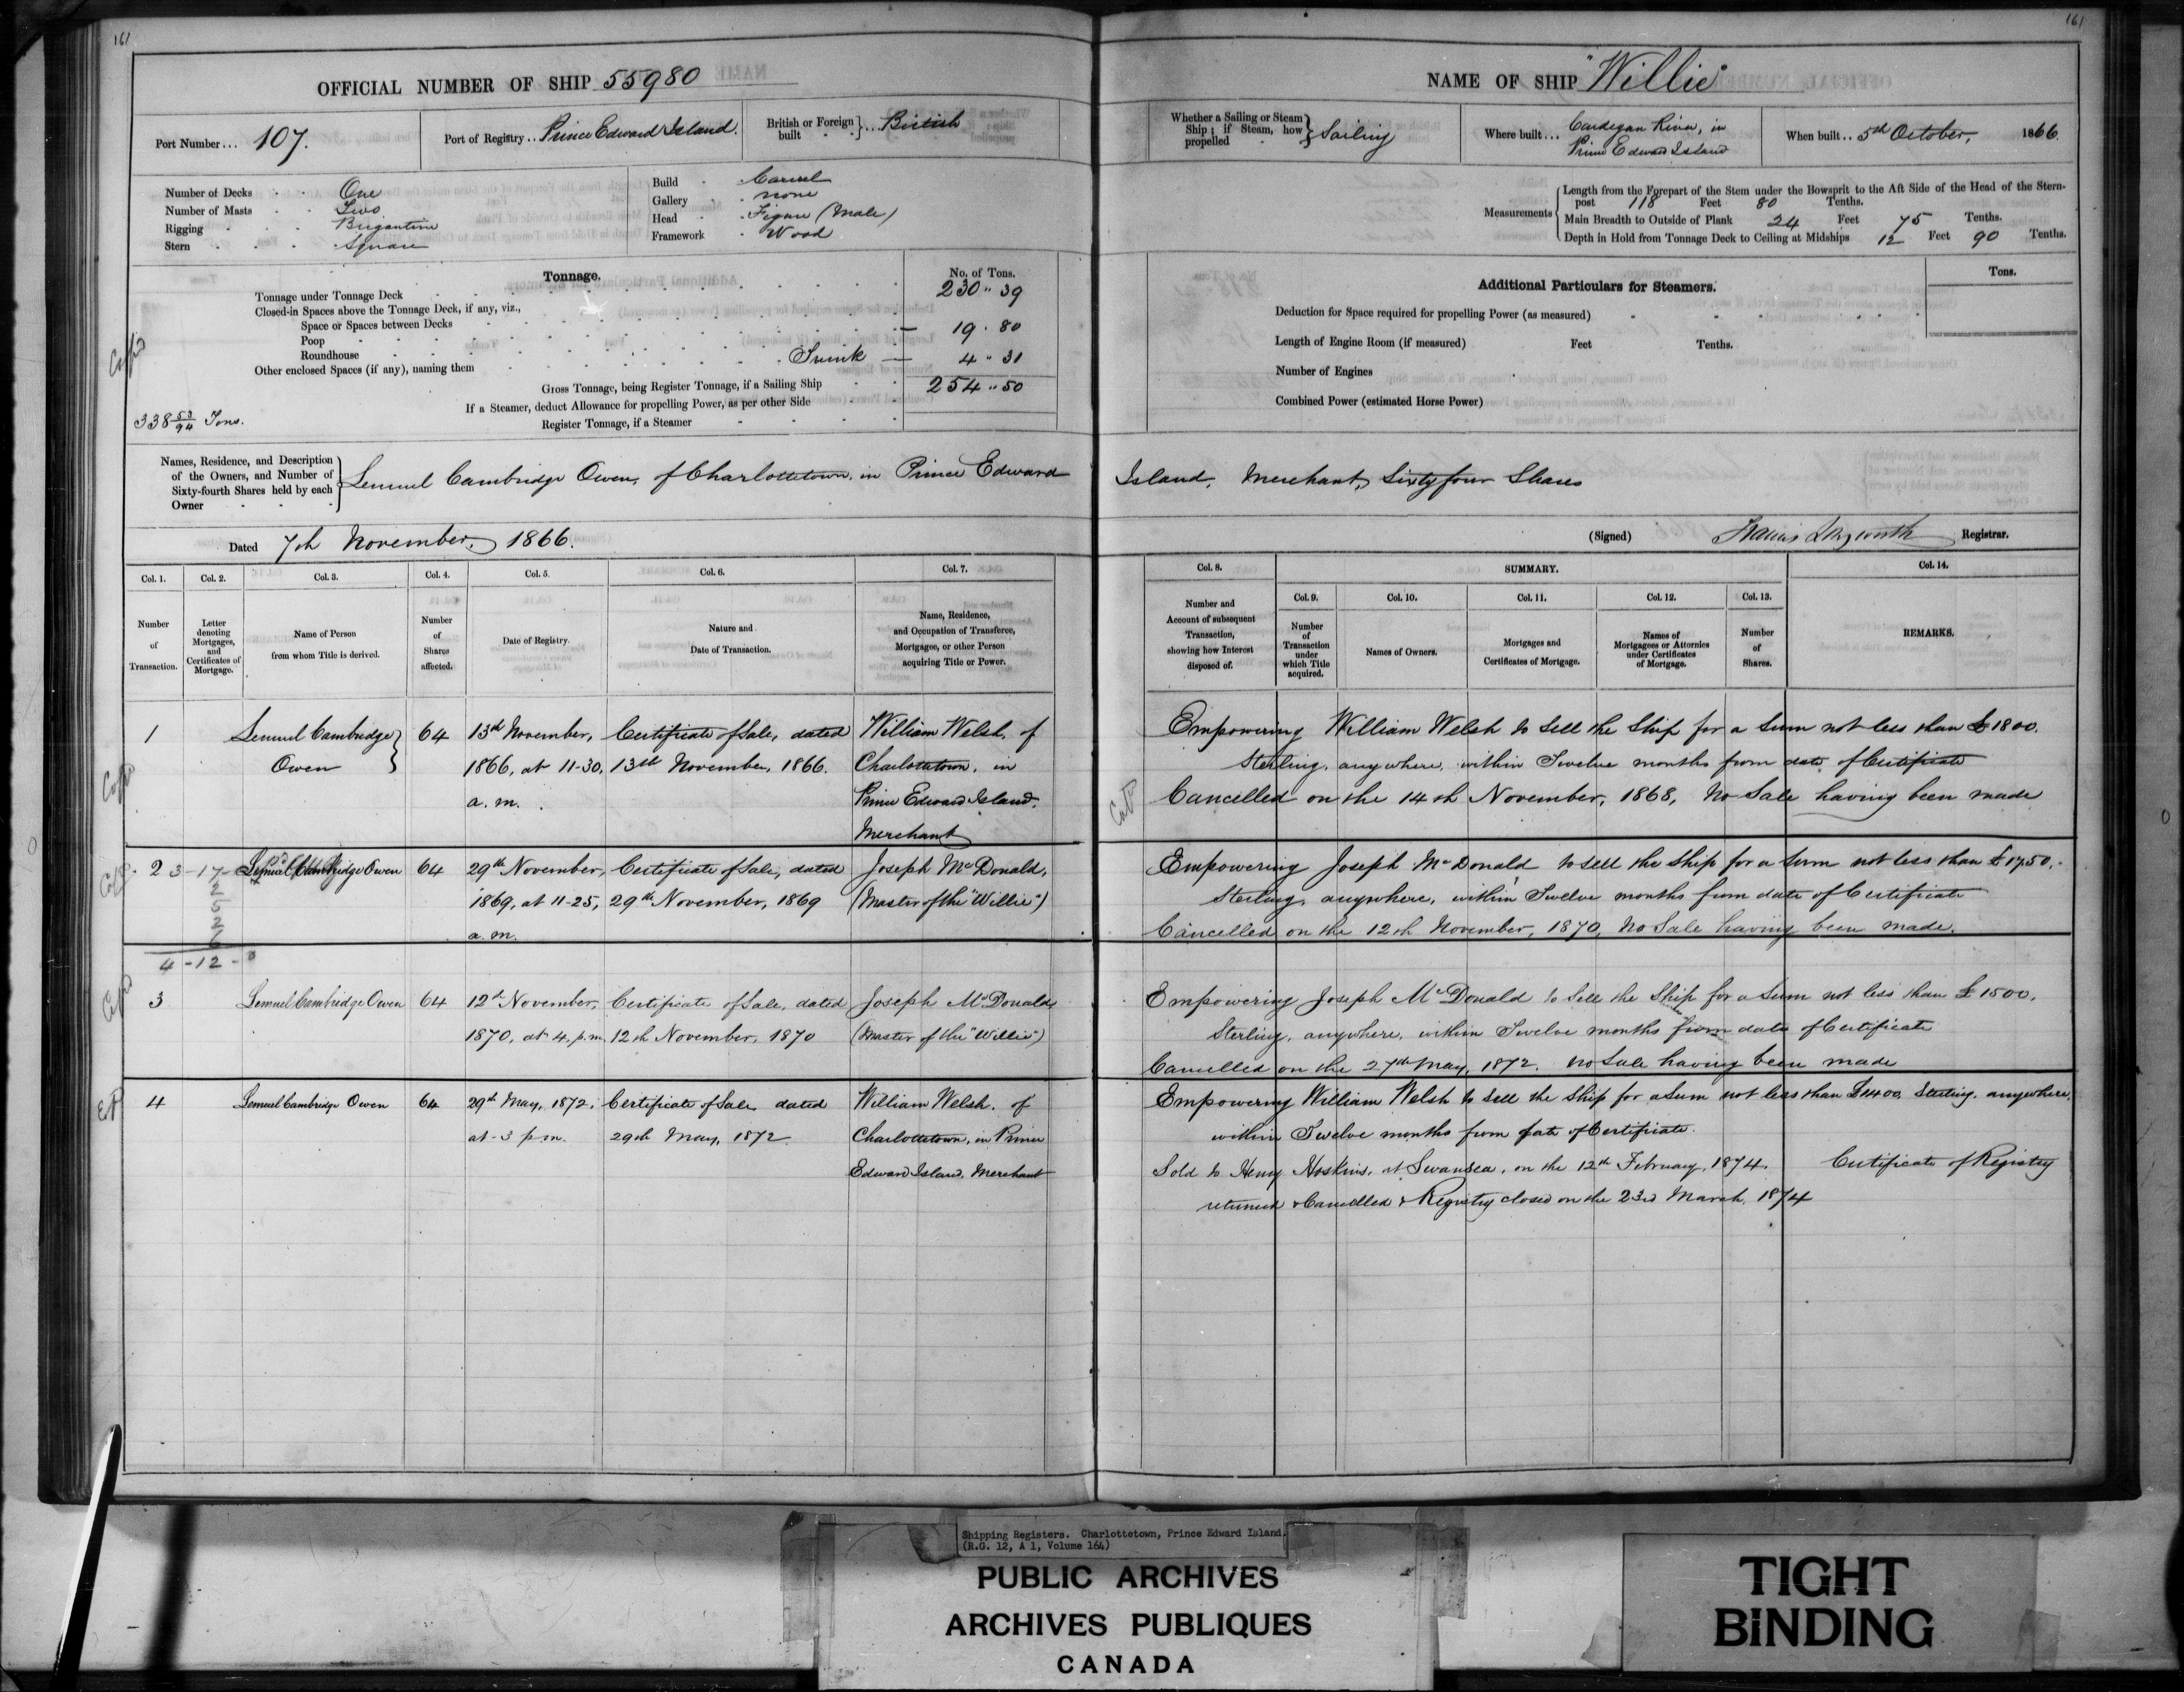 161
OFFICIAL NUMBER OF SHIP 55980
Port Number... 107.
Port of Registry.. Prince Edward Island.
British or Foreign built } ... British
Number of Decks One
Number of Masts Two
Rigging Brigantine
Stern Square
Build Carvel
Gallery none
Head Figure (Male)
Framework Wood
Tonnage.
No. of Tons.
Tonnage under Tonnage Deck 230 " 39
Closed-in Spaces above the Tonnage Deck, if any, viz.,
Space or Spaces between Decks
Poop — 19 . 80
Roundhouse
Other enclosed Spaces (if any), naming them Trunk — 4 " 31
Gross Tonnage, being Register Tonnage, if a Sailing Ship 254 " 50
If a Steamer, deduct Allowance for propelling Power, as per other Side
Register Tonnage, if a Steamer
338 53/94 Tons.
Names, Residence, and Description
of the Owners, and Number of
Sixty-fourth Shares held by each
Owner
Lemuel Cambridge Owen, of Charlottetown, in Prince Edward
Dated 7th November, 1866.
Col. 1. Col. 2. Col. 3. Col. 4. Col. 5. Col. 6. Col. 7.
Number of Transaction.
Letter denoting Mortgages, and Certificates of Mortgage.
Name of Person from whom Title is derived.
Number of Shares affected.
Date of Registry.
Nature and Date of Transaction.
Name, Residence, and Occupation of Transferee, Mortgagee, or other Person acquiring Title or Power.
1 Lemuel Cambridge } 64 13th November, Certificate of Sale, dated William Welsh, of
Owen 1866, at 11-30, 13th November, 1866. Charlottetown, in
a. m. Prince Edward Island.
Merchant
2 3 - 17 - Lemuel Cambridge Owen 64 29th November, Certificate of Sale, dated Joseph McDonald,
1869, at 11-25, 29th November, 1869 (Master of the "Willie")
a. m.
4 - 12 - 0
3 Lemuel Cambridge Owen 64 12th November, Certificate of Sale, dated Joseph McDonald
1870, at 4. p.m. 12th November, 1870 (Master of the "Willie")
4 Lemuel Cambridge Owen 64 29th May, 1872, Certificate of Sale dated William Welsh, of
at 3 p.m. 29th May, 1872 Charlottetown, in Prince
Edward Island, Merchant
161
NAME OF SHIP "Willie"
Whether a Sailing or Steam Ship; if Steam, how propelled } Sailing
Where built... Cardegan River, in
Prince Edward Island
When built.. 5th October, 1866
Measurements
Length from the Forepart of the Stem under the Bowsprit to the Aft Side of the Head of the Stern-
post 118 Feet 80 Tenths.
Main Breadth to Outside of Plank 24 Feet 75 Tenths.
Depth in Hold from Tonnage Deck to Ceiling at Midships 12 Feet 90 Tenths.
Additional Particulars for Steamers.
Tons.
Deduction for Space required for propelling Power (as measured)
Length of Engine Room (if measured) Feet Tenths.
Number of Engines
Combined Power (estimated Horse Power)
Island, Merchant, Sixty four Shares
(Signed) Registrar.
Col. 8. SUMMARY. Col. 14.
Col. 9. Col. 10. Col. 11. Col. 12. Col. 13.
Number and Account of subsequent Transaction, showing how Interest disposed of.
Number of Transaction under which Title acquired.
Names of Owners.
Mortgages and Certificates of Mortgage.
Names of Mortgagees or Attornies under Certificates of Mortgage.
Number of Shares.
REMARKS.
Empowering William Welsh to Sell the Ship for a Sum not less than £1800.
Sterling, anywhere, within Twelve months from date of Certificate
Cancelled on the 14th November, 1868, No Sale having been made
Empowering Joseph McDonald to sell the Ship for a Sum not less than £1750.
Sterling, anywhere, within Twelve months from date of Certificate
Cancelled on the 12th November, 1870, No Sale having been made.
Empowering Joseph McDonald to Sell the Ship for a Sum not less than £1500.
Sterling, anywhere, within Twelve months from date of Certificate
Cancelled on the 27th May, 1872. No Sale having been made
Empowering William Welsh to Sell the Ship for a Sum not less than £1400 Sterling, anywhere,
within Twelve months from date of Certificate.
Sold to Henry Hoskins, at Swansea, on the 12th February, 1874. Certificate of Registry
returned & Cancelled & Registry closed on the 23rd March, 1874
Shipping Registers. Charlottetown, Prince Edward Island.
(R.G. 12, A 1, Volume 164)
PUBLIC ARCHIVES
ARCHIVES PUBLIQUES
CANADA
TIGHT
BINDING